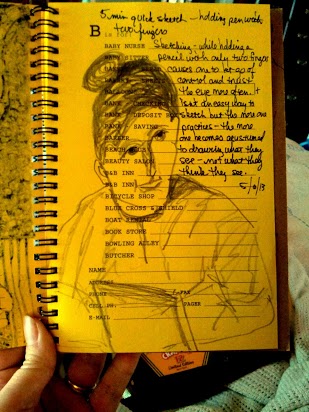 5 min quick sketch - holding pen with
two fingers
B
BABY NURSE
Sketching - while holding a
pencil with only two fingers
causes one to let go of
control and trust
the eye more often. It
isn't an easy way to
sketch but the more one
practices - the more
one becomes accustomed
to drawing what they
see - not what they
think they see.
5/9/13
BANK CHECKING
BANK DEPOSIT BOX
BANK SAVING
BEAUTY SALON
B&B INN
B&B INN
BICYCLE SHOP
BLUE CROSS & SHIELD
BOAT RENTAL
BOOK STORE
BOWLING ALLEY
BUTCHER
NAME
ADDRESS
PHONE
FAX
CELL PH.
PAGER
E-MAIL
Limited Edition